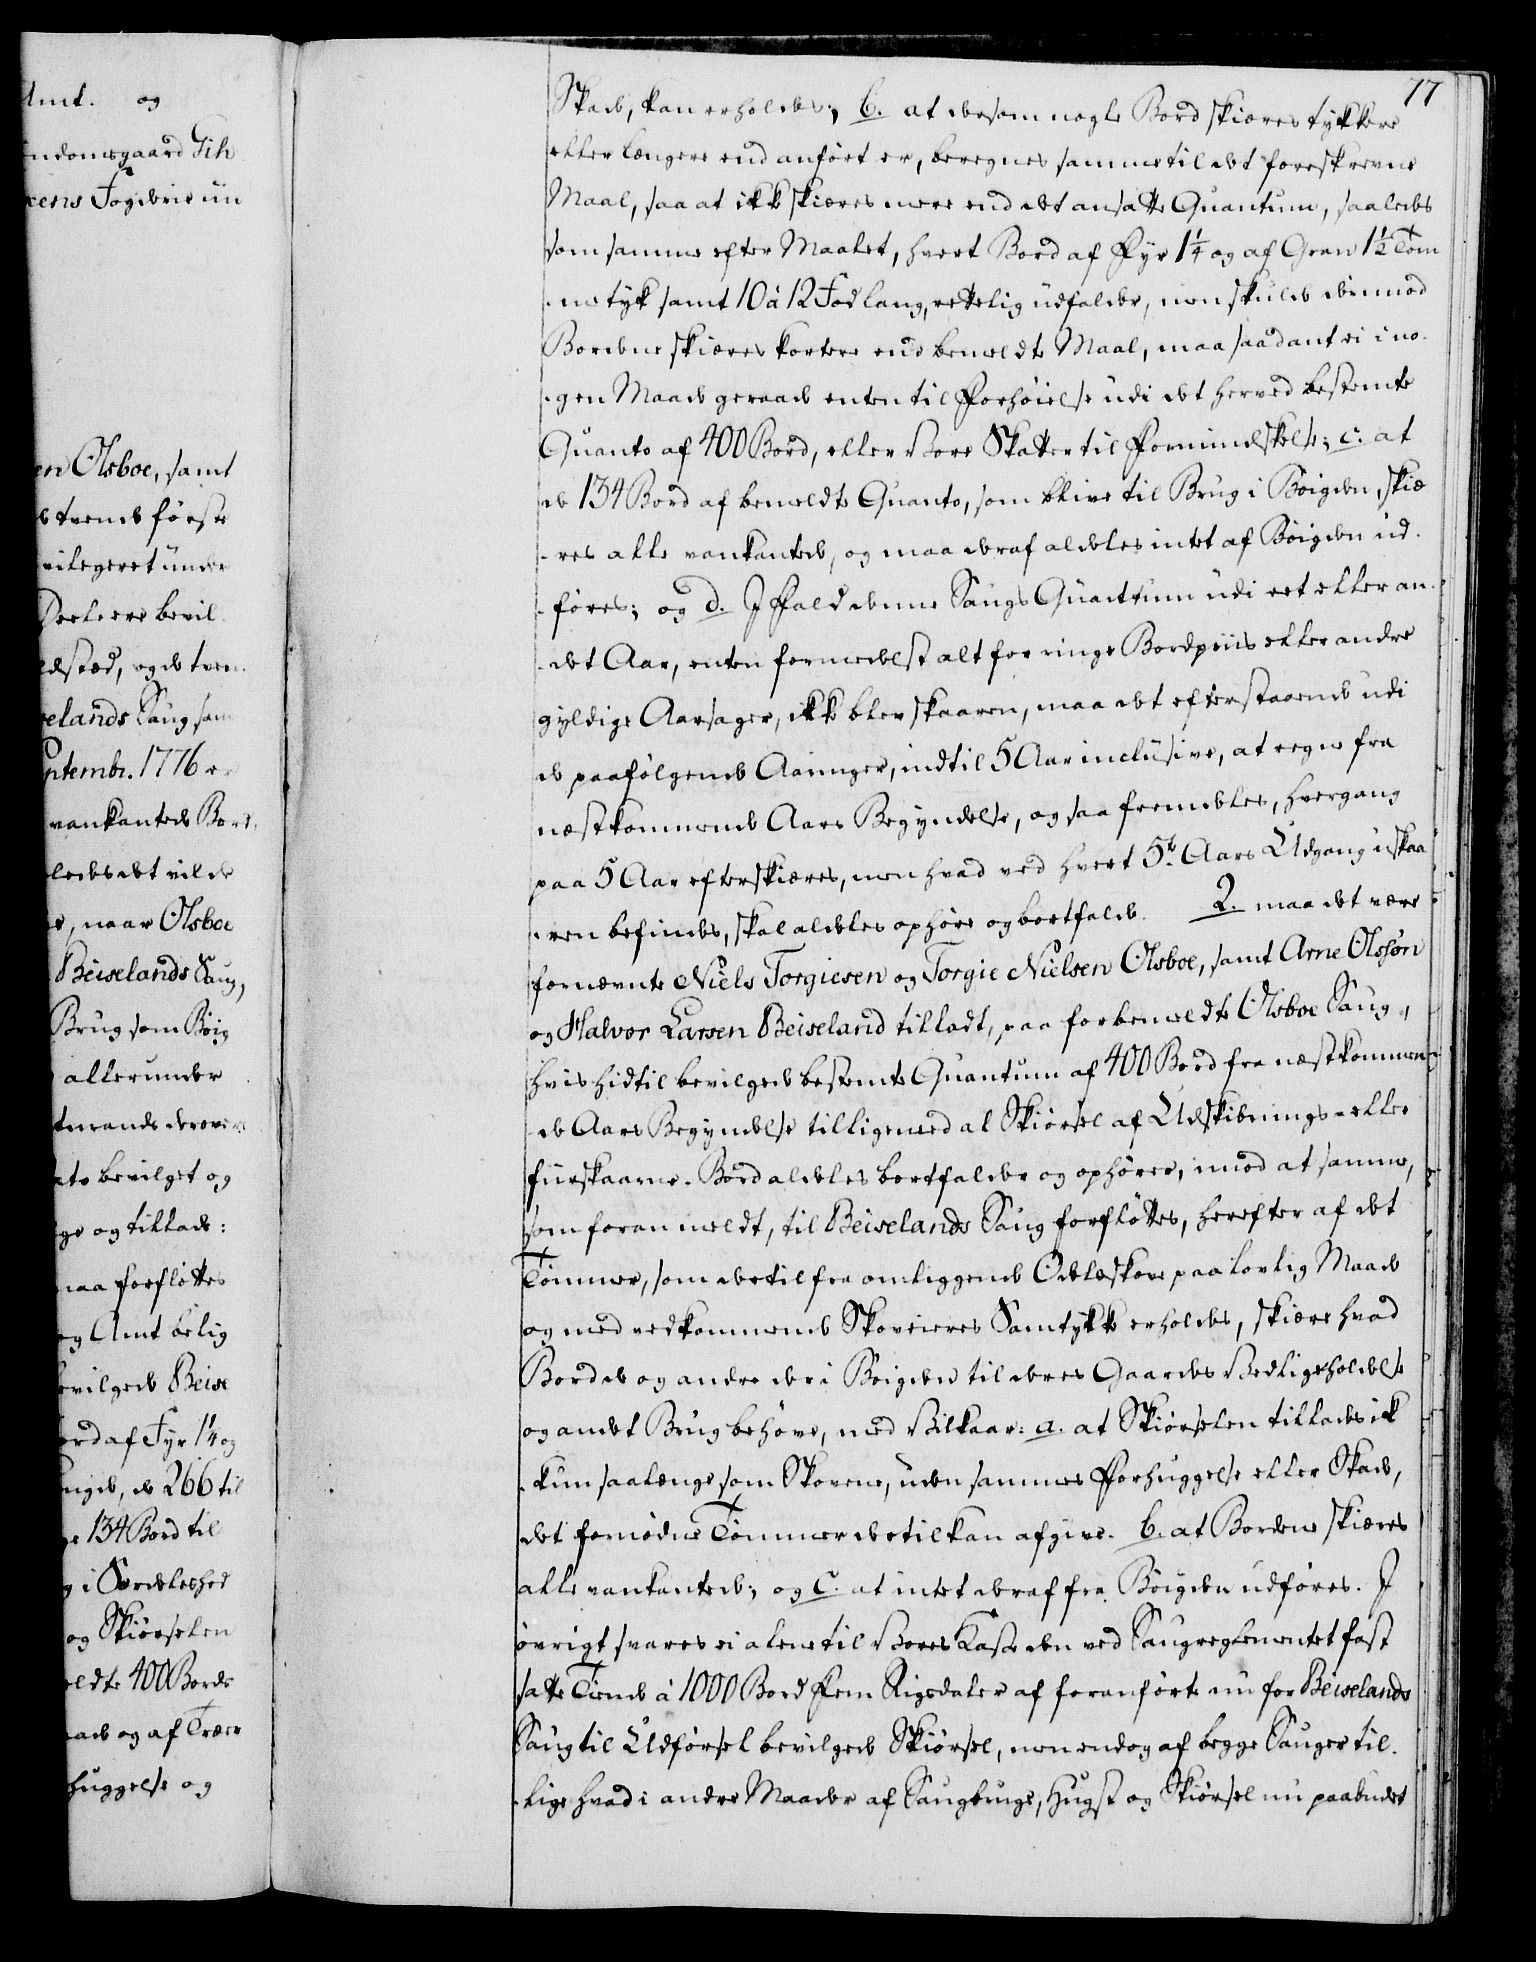 Amt. og
endomsgaard Tih
xens Fogderie un
en Olsboe, samt
e tvende første
vilegeret under
Deelere bevil
dsted, og de tven
elands Saug sam
ptembr. 1776 er
vankantede Bord,
ledes det vil de
e, naar Olsboe
Beiselands Saug,
Brug som Böig
allerunder
tmands derover
ato bevilget og
ge og tillade:
maa forfløttes
og Amt belig
evilgede Beise
ord af Fyr 1¼ og
ngde, de 266 til
ge 134 Bord til
g i Særdeleshed
og Skiørselen
eldte 400 Bords
ade og af Træer
huggelse og
77
Skade, kan erholdes; b. at dersom nogle Bord skiæres tykkere
eller længere end anført er, beregnes samme til det foreskrevne
Maal, saa at ikke skiæres mere end det ansatte Quantum, saaledes
som samme efter Maalet, hvert Bord af Fyr 1¼ og af Gran 1½ Tom
me tyk samt 10 à 12 Fod lang, rettelig udfalder, men skulde derimod
Bordene skiæres kortere end bemeldte Maal, maa saadant ei i no-
gen Maade geraade enten til Forhøielse udi det herved bestemte
Quanto af 400 Bord, eller Vore Skatter til Formindskelse; c. at
de 134 Bord af bemeldte Quanto, som blive til Brug i Böigden, skiæ
res alle vankantede, og maa deraf aldeles intet af Böigden ud-
føres; og d. I Fald denne Saugs Quantum udi eet eller an-
det Aar, enten formedelst alt for ringe Bordpriis eller andre
gyldige Aarsager, ikke blev skaaren, maa det efterstaaende udi
de paafølgende Aaringer, indtil 5 Aar inclusive, at regne fra
næstkommende Aars Begyndelse, og saa fremdeles, hvergang
paa 5 Aar efterskiæres, men hvad ved hvert 5te Aars Udgang uskaa
ren befindes, skal aldeles ophøre og bortfalde. 2. maa det være
fornævnte Niels Torgiesen og Torgie Nielsen Olsboe, samt Arne Olssøn
og Halvor Larsen Beiseland tilladt, paa forbemeldte Olsboe Saug,
hvis hidtil bevilgede bestemte Quantum af 400 Bord fra næstkommen
de Aars Begyndelse tilligemed al Skiørsel af Udskibnings- eller
fiirskaarne-Bord aldeles bortfalder og ophører, imod at samme,
som foranmeldt, til Beiselands Saug forfløttes, herefter af det
Tømmer, som dertil fra omliggende Odelsskove paa lovlig Maade
og med vedkommende Skoveieres Samtykke erholdes, skiære hvad
Bord de og andre der i Böigden til deres Gaardes Vedligeholdelse
og andet Brug behøve, med Vilkaar: a. at Skiørselen tillades ik
kun saalænge som Skovene, uden sammes Forhuggelse eller Skade,
det fornødne Tømmer dertil kan afgive. b. at Bordene skiæres
alle vankantede; og c. at intet deraf fra Böigden udføres. I
øvrigt svares ei alene til Vores Kasse den ved Saugreglementet fast
satte Tiende à 1000 Bord Fem Rigsdaler af foranførte nu for Beiselands
Saug til Udførsel bevilgede Skiørsel, men endog af begge Sauger til-
lige hvad i andre Maader af Saugbruge, Hugst og Skiørsel nu paabudet